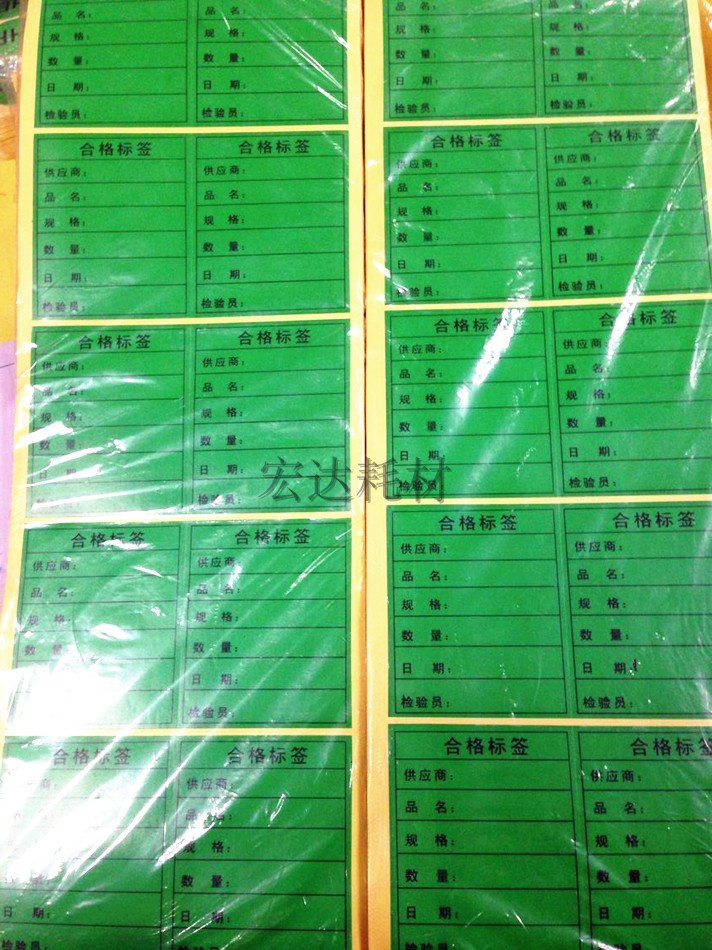 品 名：
规 格：
数 量：
日 期：
检验员：
品 名：
规 格：
数 量：
日 期：
检验员：
品 名：
规 格：
数 量：
日 期：
检验员：
规 格：
数 量：
日 期：
检验员：
合格标签
供应商：
品 名：
规 格：
数 量：
日 期：
检验员：
合格标签
供应商：
品 名：
规 格：
数 量：
日 期：
检验员：
合格标签
供应商：
品 名：
规 格：
数 量：
日 期：
检验员：
合格标签
供应商：
品 名：
规 格：
数 量：
日 期：
检验员：
合格标签
供应商：
品 名：
规 格：
数 量：
日 期：
检验员：
合格标签
供应商：
品 名：
规 格：
数 量：
日 期：
检验员：
合格标签
供应商：
品 名：
规 格：
数 量：
日 期：
检验员：
合格标签
供应商：
品 名：
规 格：
数 量：
日 期：
检验员：
宏达耗材
合格标签
供应商：
品 名：
规 格：
数 量：
合格标签
供应商：
品 名：
规 格：
数 量：
日 期：
检验员：
合格标签
供应商：
品 名：
规 格：
数 量：
日 期：
检验员：
合格标签
供应商：
品 名：
规 格：
数 量：
日 期：
检验员：
合格标签
商：
量：
日 期：
检验员：
合格标签
供应商：
品 名：
规 格：
数 量：
日 期：
检验员：
合格标签
供应商：
品 名：
规 格：
数 量：
日 期：
检验员：
合格标签
供应商：
品 名：
规 格：
数 量：
日 期：
检验员：